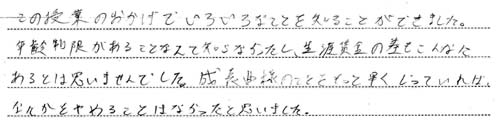 この授業のおかげでいろいろなことを知ることができました。
年齢制限があることなんて知らなかったし、生涯賃金の差もこんなに
あるとは思いませんでした。成長曲線のことをもっと早くしっていれば、
なにかをやめることはなかったと思いました。